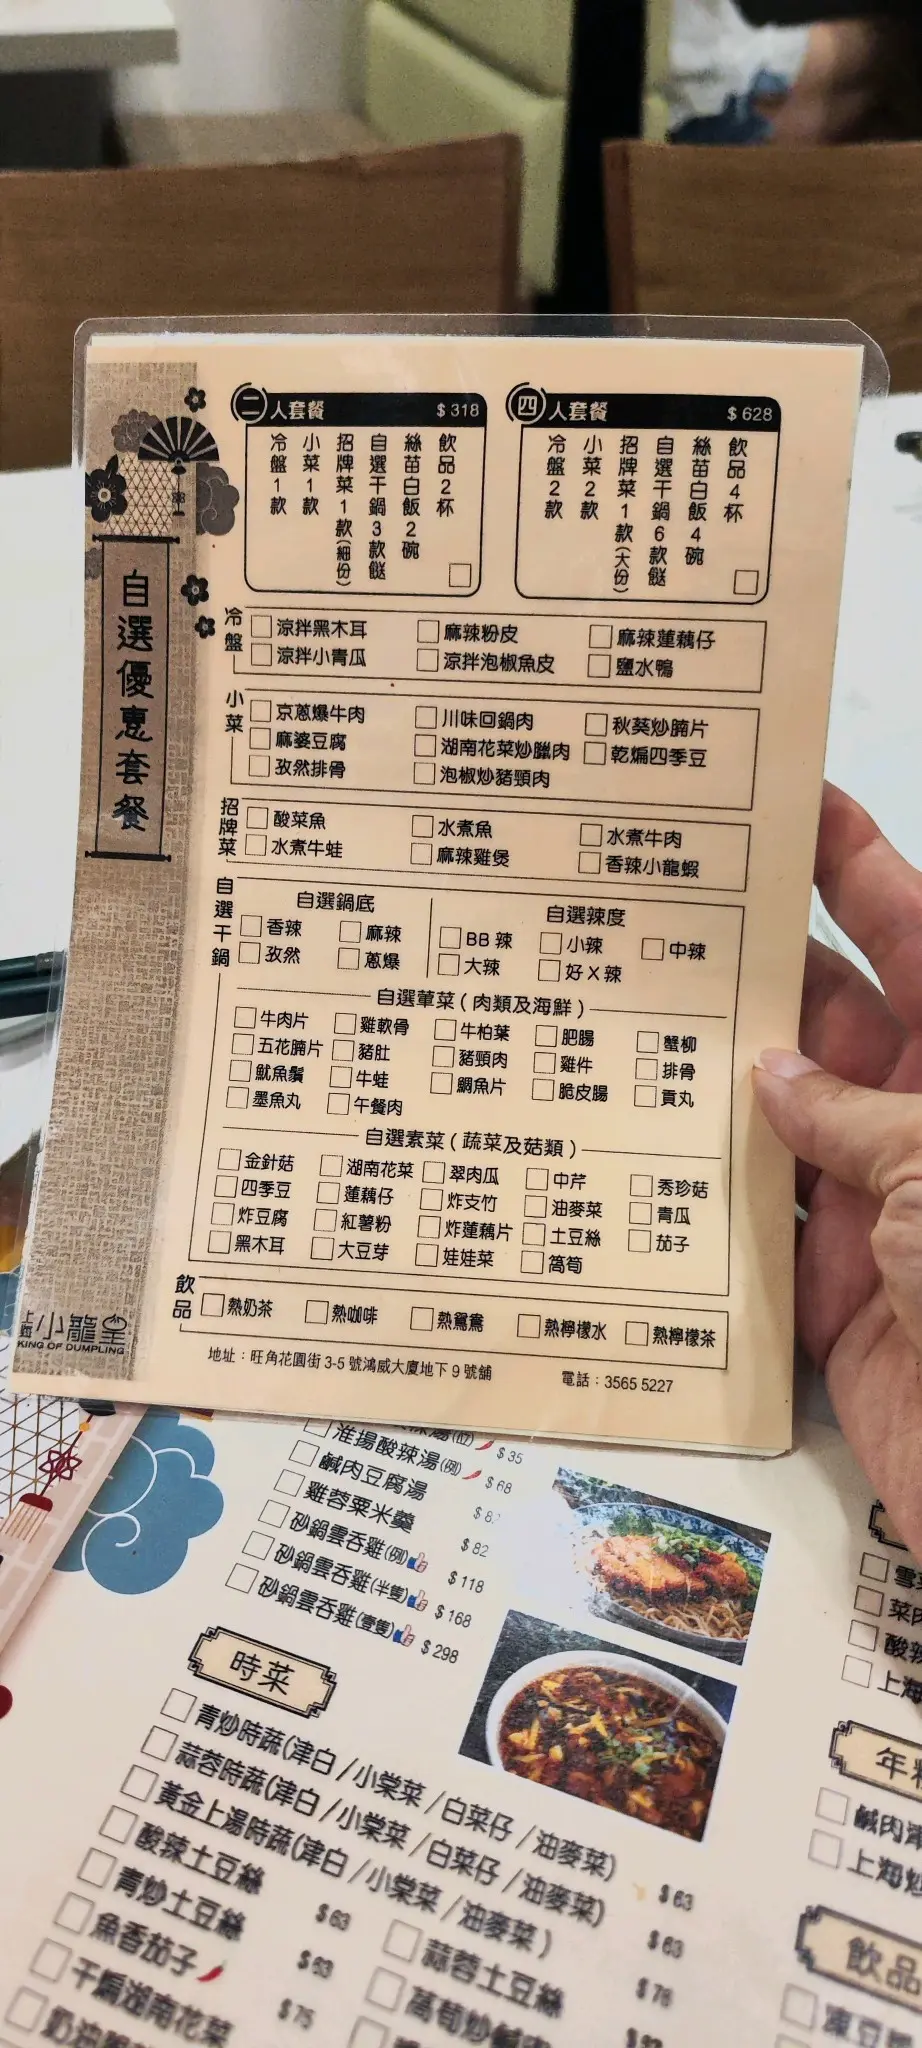 自選優惠套餐
二人套餐 $318
冷盤1款
小菜1款
招牌菜1款(細份)
自選干鍋3款餸
絲苗白飯2碗
飲品2杯
四人套餐 $628
冷盤2款
小菜2款
招牌菜1款(大份)
自選干鍋6款餸
絲苗白飯4碗
飲品4杯
冷盤
涼拌黑木耳 麻辣粉皮 麻辣蓮藕仔
涼拌小青瓜 涼拌泡椒魚皮 鹽水鴨
小菜
京蔥爆牛肉 川味回鍋肉 秋葵炒腩片
麻婆豆腐 湖南花菜炒臘肉 乾煸四季豆
孜然排骨 泡椒炒豬頸肉
招牌菜
酸菜魚 水煮魚 水煮牛肉
水煮牛蛙 麻辣雞煲 香辣小龍蝦
自選干鍋
自選鍋底
香辣 麻辣
孜然 蔥爆
自選辣度
BB辣 小辣 中辣
大辣 好X辣
自選葷菜(肉類及海鮮)
牛肉片 雞軟骨 牛柏葉 肥腸 蟹柳
五花腩片 豬肚 豬頸肉 雞件 排骨
魷魚鬚 牛蛙 鯛魚片 脆皮腸 貢丸
墨魚丸 午餐肉
自選素菜(蔬菜及菇類)
金針菇 湖南花菜 翠肉瓜 中芹 秀珍菇
四季豆 蓮藕仔 炸支竹 油麥菜 青瓜
炸豆腐 紅薯粉 炸蓮藕片 土豆絲 茄子
黑木耳 大豆芽 娃娃菜 萵筍
飲品
熱奶茶 熱咖啡 熱鴛鴦 熱檸檬水 熱檸檬茶
小龍皇
KING OF DUMPLING
地址：旺角花園街3-5號鴻威大廈地下9號舖 電話：3565 5227
$35
淮揚酸辣湯(例) $68
鹹肉豆腐湯
雞蓉粟米羹 $82
砂鍋雲吞雞(例) $118
砂鍋雲吞雞(半隻) $168
砂鍋雲吞雞(壹隻) $298
時菜
青炒時蔬(津白/小棠菜/白菜仔/油麥菜) $63
蒜蓉時蔬(津白/小棠菜/白菜仔/油麥菜) $63
黃金上湯時蔬(津白/小棠菜/油麥菜) $78
酸辣土豆絲 $63
青炒土豆絲 $63
魚香茄子 $75
干煸湖南花菜
奶油
蒜蓉土豆絲
萵筍炒鹹
菜肉
酸辣
上海
年
鹹肉
上海炒
飲品
凍豆